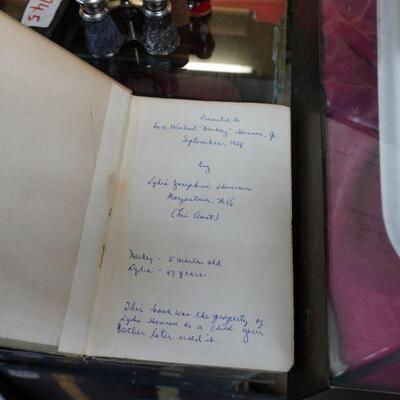 245
Presented to
Earl Michael "Mickey" Hennen, Jr.
September, 1959
by
Lydia Josephine Hennen
Morgantown W.Va
(His Aunt)
Mickey - 5 months old
Lydia - 47 years
This book was the property of
Lydia Hennen as a child your
father later used it.